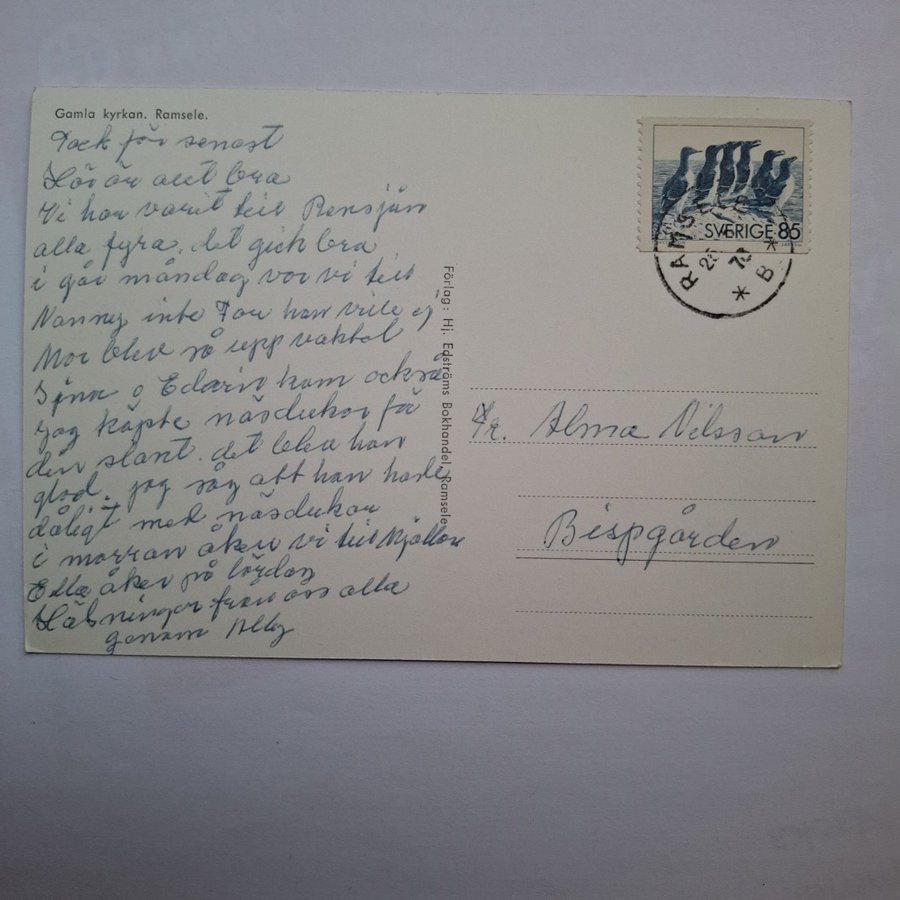 Gamla kyrkan. Ramsele.
Tack för senast
Här är allt bra
Vi har varit till Rensjön
alla fyra. det gick bra
i går måndag var vi till
Nanny inte Tor han ville ej
Mor blev så upp vaktad
o Edvin kom också
jag köpte näsdukar för
den slant. det blev han
glad. jag såg att han hade
dåligt med näsdukar
i morran åker vi till
Ella åker på lördag
Hälsningar från oss alla
genom Ally
Förlag: Hj. Edströms Bokhandel, Ramsele
SVERIGE 85
RAMSELE
B
Fr. Alma Nilsson
Bispgården